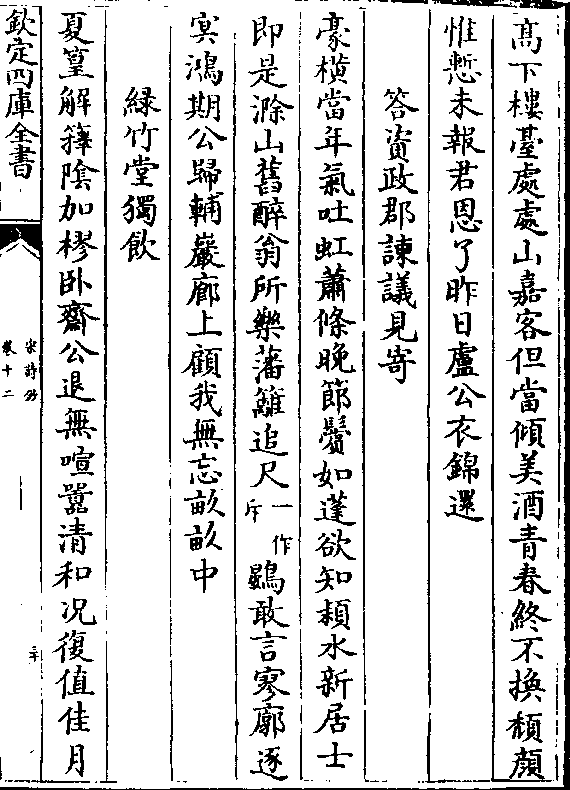 髙下樓臺處處山嘉客但當傾美酒青春終不換頽顔
惟慙未報君恩了昨日盧公衣錦還
答資政邵諫議見寄
豪横當年氣吐虹蕭條晚節鬢如蓬欲知潁水新居士
即是滁山舊醉翁所樂藩籬追尺一作斥鷃敢言寥廓逐
㝠鴻期公歸輔巖廊上顧我無忘畎畝中
緑竹堂獨飲
夏篁解籜隂加樛卧齋公退無喧囂清和况復值佳月
欽定四庫全書
宋詩鈔
卷十二